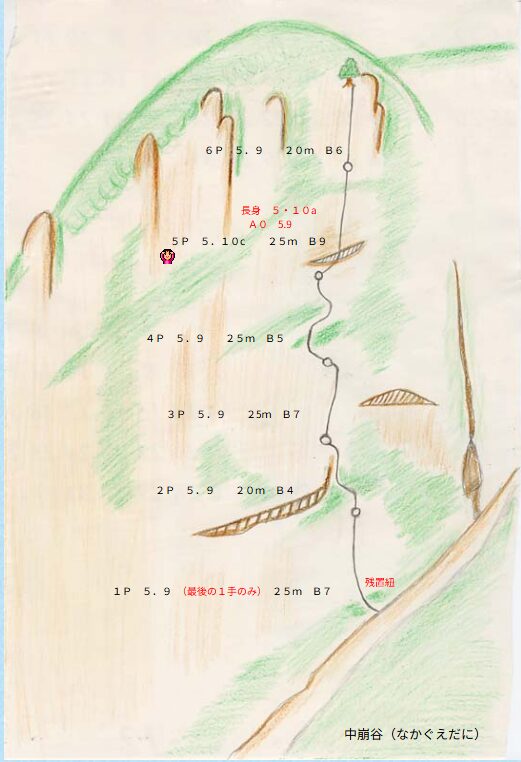 6P 5.9 20m B6
長身 5・10a
A0 5.9
5P 5.10c 25m B9
4P 5.9 25m B5
3P 5.9 25m B7
2P 5.9 20m B4
残置紐
1P 5.9 (最後の1手のみ) 25m B7
中崩谷（なかぐえだに）